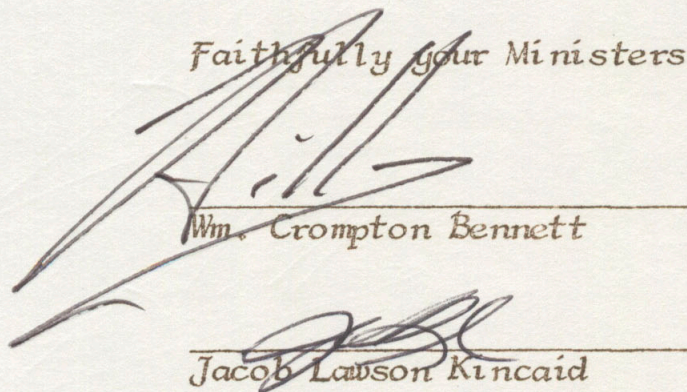 Faithfully your Ministers
Will
Wm. Crompton Bennett
Jacob Lawson Kincaid